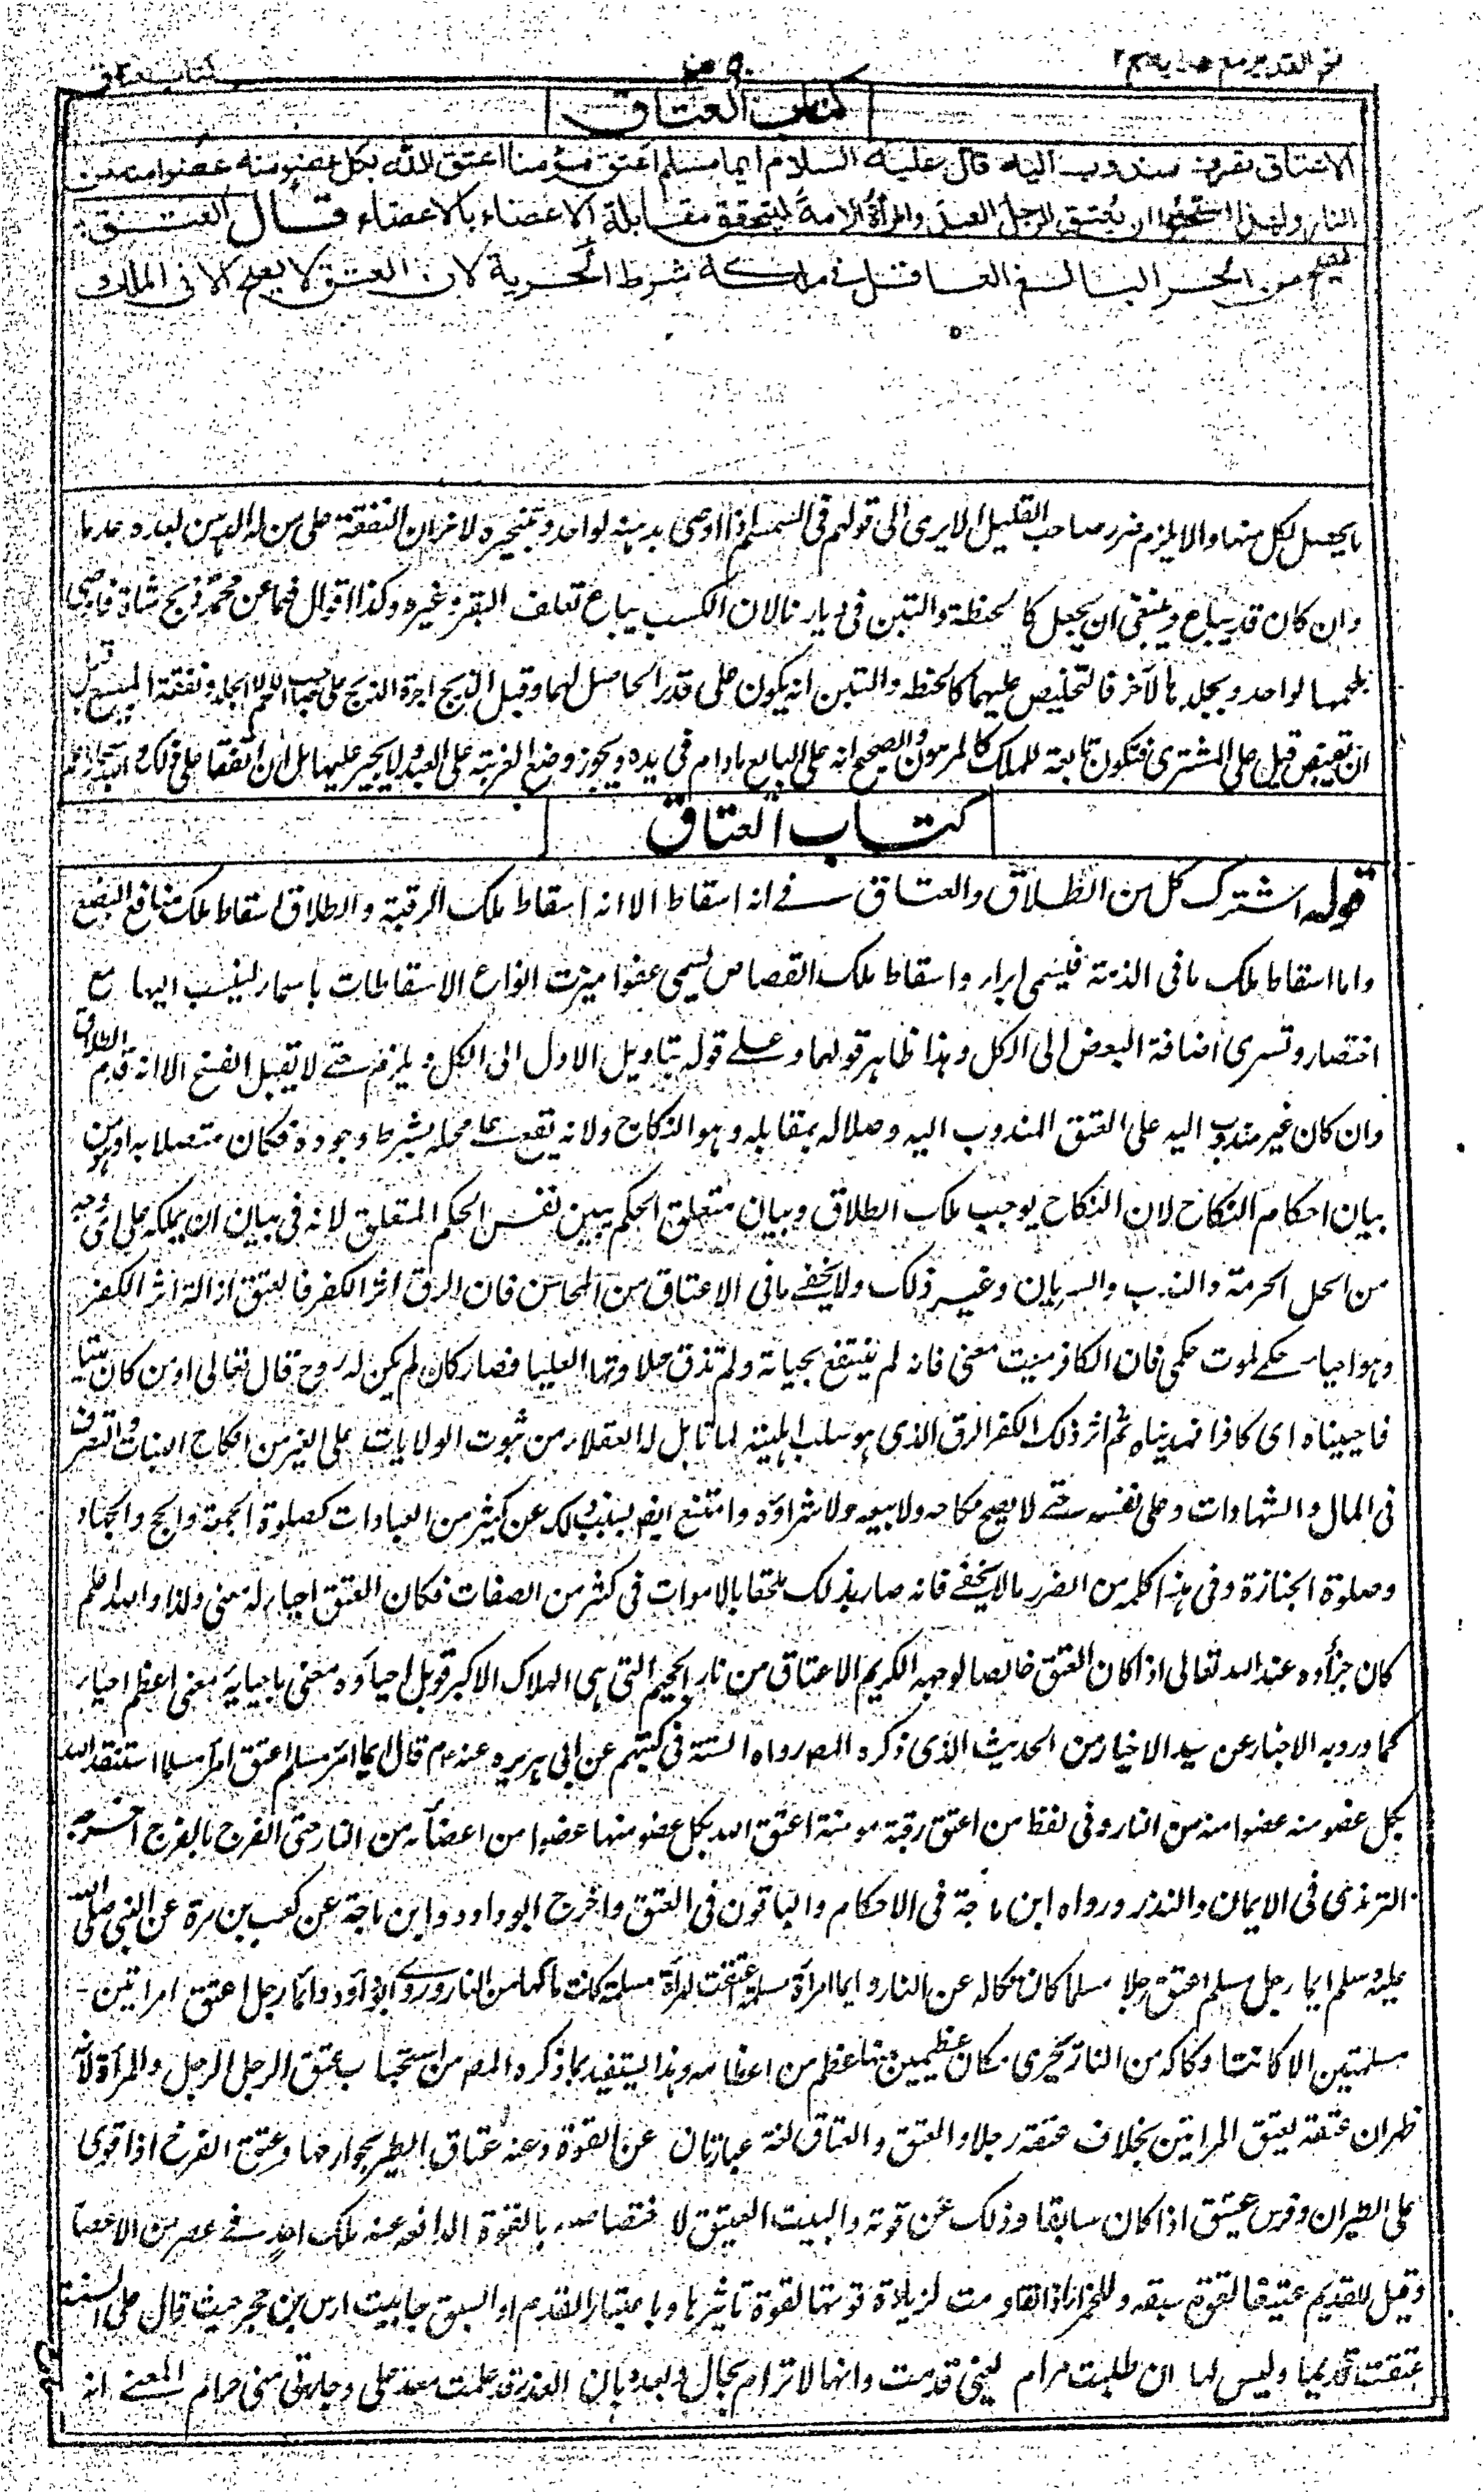 فتح القدير مع هدايه ج ٢
كتاب العتاق
كتاب العتاق
الاعتاق تصرف مندوب اليه قال عليه السلام ايما مسلم اعتق مؤمنا اعتق الله بكل عضو منه عضوا منه من
النار ولهذا استحبوا ان يعتق الرجل العبد والمرأة الامة ليتحقق مقابلة الاعضاء بالاعضاء قال العتق
يصح من الحر البالغ العاقل في ملكه شرط الحرية لان العتق لا يصح الا في الملك و
ما يحصل لكل منهما والا يلزم ضرر صاحب القليل الا يرى الى قولهم فى السمسم اذا اوصى بدهنه لواحد وبثجيره لاخر ان النفقة على من له الدهن لعده عدما
وان كان قد يباع وينبغى ان يجعل كالحنطة والتبن فى ديارنا لان الكسب يباع لعلف البقر وغيره وكذا اقول فيما عن محمد ذبح شاة فاوصى
بلحمها لواحد وبجلدها لآخر فالتخليص عليهما كالحنطة والتبن انه يكون على قدر الحاصل لهما وقبل الذبح اجرة الذبح على صاحب اللحم لا الجلد ونفقة المبيع قبل
ان يقبض قيل على المشترى فتكون تابعة للملك كالمرهون والصحيح انه على البايع مادام فى يده ويجوز وضع الضريبة على العبد ولا يجبر عليها بل ان اتفقا على ذلك
كتاب العتاق
قوله اشترك كل من الطلاق والعتاق في انه اسقاط الا انه اسقاط ملك الرقبة والطلاق اسقاط ملك منافع البضع
واما اسقاط ملك ما فى الذمة فيسمى ابراء واسقاط ملك القصاص يسمى عفوا ميزت انواع الاسقاطات باسماء لينسب اليها مع
اختصار وتسرى اضافة البعض الى الكل وهذا ظاهر قولهما وعلى قوله بتاويل الاول الى الكل ويلزم حتى لا يقبل الفسخ الا انه قدم الطلاق
وان كان غير مندوب اليه على العتق المندوب اليه وصلا له بمقابله وهو النكاح ولانه تقع على محله بشرط وجوده فكان متصلا به اوهو من
بيان احكام النكاح لان النكاح يوجب ملك الطلاق وبيان متعلق الحكم يبين نفس الحكم المتعلق لانه فى بيان ان يملكه على اى وجه
من الحل الحرمة والندب والسريان وغير ذلك ولا يخفى ما فى الاعتاق من المحاسن فان الرق اثر الكفر فالعتق ازالة اثر الكفر
وهو احياء حكمى لموت حكمى فان الكافر ميت معنى فانه لم ينتفع بحياته ولم تذق حلاوتها العليا فصار كان لم يكن له روح قال تعالى اومن كان ميتا
فاحييناه اى كافرا فهديناه ثم اثر ذلك الكفر الرق الذى هو سلب اهليته لما تاهل له العقلاء من ثبوت الولايات على الغير من انكاح البنات والتصرف
فى المال والشهادات وعلى نفسه حتى لا يصح نكاحه ولا بيعه ولا شراؤه وامتنع ايضا بسبب ذلك عن كثير من العبادات كصلوة الجمعة والحج والجهاد
وصلوة الجنازة وفى هذا كله من الضرر مالا يخفى فانه صار بذلك ملحقا بالاموات فى كثير من الصفات فكان العتق احياء له معنى ولذا والله اعلم
كان جزاؤه عند الله تعالى اذا كان العتق خالصا لوجهه الكريم الاعتاق من نار الجحيم التى هى الهلاك الاكبر قوبل احياؤه معنى باحيايه معنى اعظم احياء
كما ورد به الاخبار عن سيد الاخيار من الحديث الذى ذكره المصـ رواه الستة فى كتبهم عن ابى هريره عنه عم قال ايما امرء مسلم اعتق امرأ مسلما استنقذ الله
بكل عضو منه عضوا منه من النار وفى لفظ من اعتق رقبة مومنة اعتق الله بكل عضو منها عضوا من اعضائه من النار حتى الفرج بالفرج اخرجه
الترمذى فى الايمان والنذر ورواه ابن ماجة فى الاحكام والباقون فى العتق واخرج ابو داود وابن ماجة عن كعب بن مرة عن النبى صلى الله
عليه وسلم ايما رجل مسلم اعتق رجلا مسلما كان فكاكه عن النار وايما امرأة مسلمة اعتقت امرأة مسلمة كانت فكاكها من النار وروى ابو داود وايما رجل اعتق امراتين
مسلمتين الا كانتا فكاكه من النار يجزى مكان عظمين منها عظم من اعظامه وهذا يستفيد ما ذكره المصـ من استحباب عتق الرجل الرجل والمرأة لانه
ظهر ان عتقه بعتق المراتين بخلاف عتقه رجلا والعتق والعتاق لغة عبارتان عن القوة وعنه عتاق الطير لجوارحها وعتق الفرخ اذا قوى
على الطيران وفرس عتيق اذا كان سابقا وذلك عن قوته والبيت العتيق لاختصاصه بالقوة الدافعه عنه ملك احد في عصر من الاعصا
وقيل للقديم عتيق لقوة سبقه وللخمر اذا تقادمت لزيادة قوتها لقوة تاثيرها وباعتبار القدم او السبق جا بيت اوس بن حجر حيث قال على السنة
عتقت قديما وليس لها ان طلبت مرام يعنى قدمت وانها لا ترام بحال وبعده بان العذر قد علمت معد على وجارتى منى حرام المعنى انه